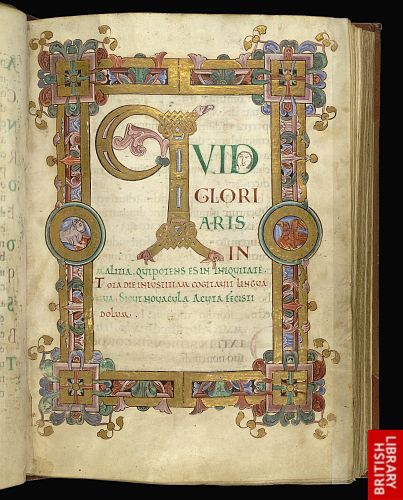 QVID
GLORI
ARIS
IN
MALITIA. QUI POTENS ES IN INIQUITATE.
TOTA DIE INIUSTITIAM COGITAUIT LINGUA
TUA. SICUT NOUACULA ACUTA FECISTI
DOLUM.
BRITISH
LIBRARY